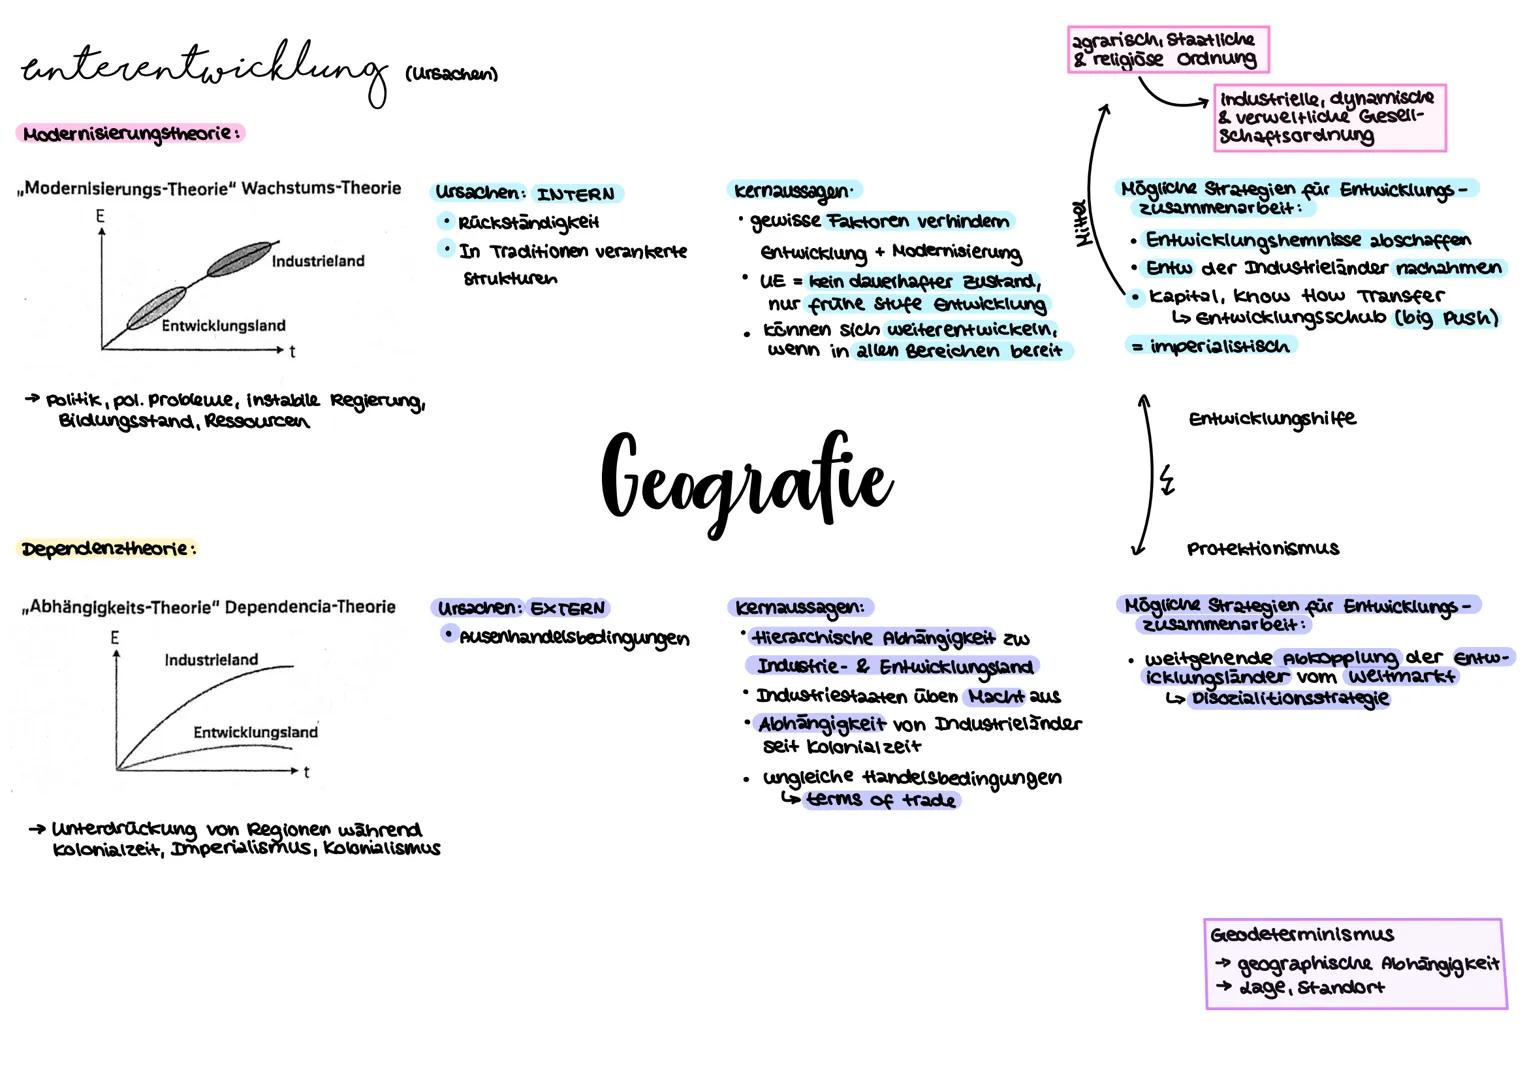 unterentwicklung (Ursachen)
Modernisierungstheorie:
„Modernisierungs-Theorie" Wachstums-Theorie
E
Industrieland
Entwicklungsland
t
→ Politik, pol. Probleme, instabile Regierung,
Bildungsstand, Ressourcen
Ursachen: INTERN
• Rückständigkeit
• In Traditionen verankerte
Strukturen
Kernaussagen:
• gewisse Faktoren verhindern
Entwicklung + Modernisierung
• UE = kein dauerhafter Zustand,
nur frühe Stufe Entwicklung
• können sich weiterentwickeln,
wenn in allen Bereichen bereit
agrarisch, Staatliche
& religiöse Ordnung
industrielle, dynamische
& verweltliche Gesell-
schaftsordnung
Mittel
Mögliche Strategien für Entwicklungs-
zusammenarbeit:
• Entwicklungshemnisse abschaffen
• Entw der Industrieländer nachahmen
• Kapital, Know How Transfer
↳ Entwicklungsschub (big Push)
= imperialistisch
Entwicklungshilfe
Protektionismus
Geografie
Dependenztheorie:
„Abhängigkeits-Theorie" Dependencia-Theorie
E
Industrieland
Entwicklungsland
t
→ Unterdrückung von Regionen während
Kolonialzeit, Imperialismus, Kolonialismus
Ursachen: EXTERN
• Ausenhandelsbedingungen
Kernaussagen:
• Hierarchische Abhängigkeit zw
Industrie- & Entwicklungsland
• Industriestaaten üben Macht aus
• Abhängigkeit von Industrieländer
seit Kolonialzeit
• ungleiche Handelsbedingungen
↳ terms of trade
Mögliche Strategien für Entwicklungs-
zusammenarbeit:
• weitgehende Abkopplung der Entw-
icklungsländer vom Weltmarkt
↳ Disozialitionsstrategie
Geodeterminismus
→ geographische Abhängigkeit
→ Lage, Standort